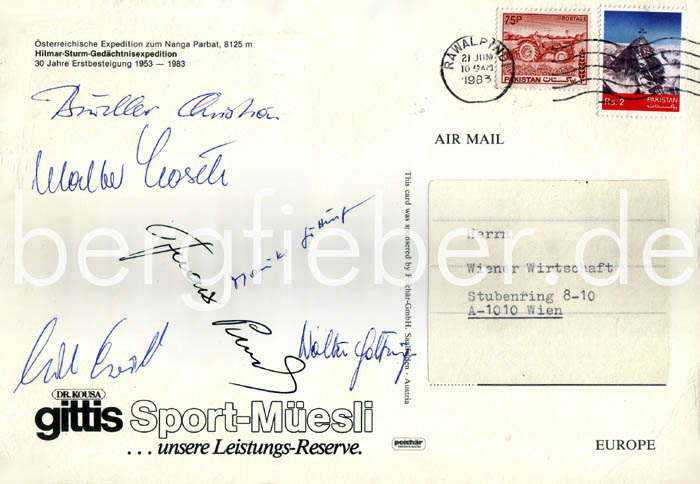 Österreichische Expedition zum Nanga Parbat, 8125 m
Hilmar-Sturm-Gedächtnisexpedition
30 Jahre Erstbesteigung 1953 — 1983
75P
POSTAGE
PAKISTAN
Rs. 2
PAKISTAN
RAWALPINDI
21 JUN
1983
AIR MAIL
Christian
Walter
Monika
Walter
This card was sponsored by Pechär-GmbH. Saalfelden - Austria
bergfieber.de
Herrn
Wiener Wirtschaft
Stubenring 8-10
A-1010 Wien
DR. KOUSA
gittis Sport-Müesli
... unsere Leistungs-Reserve.
pechär
EUROPE